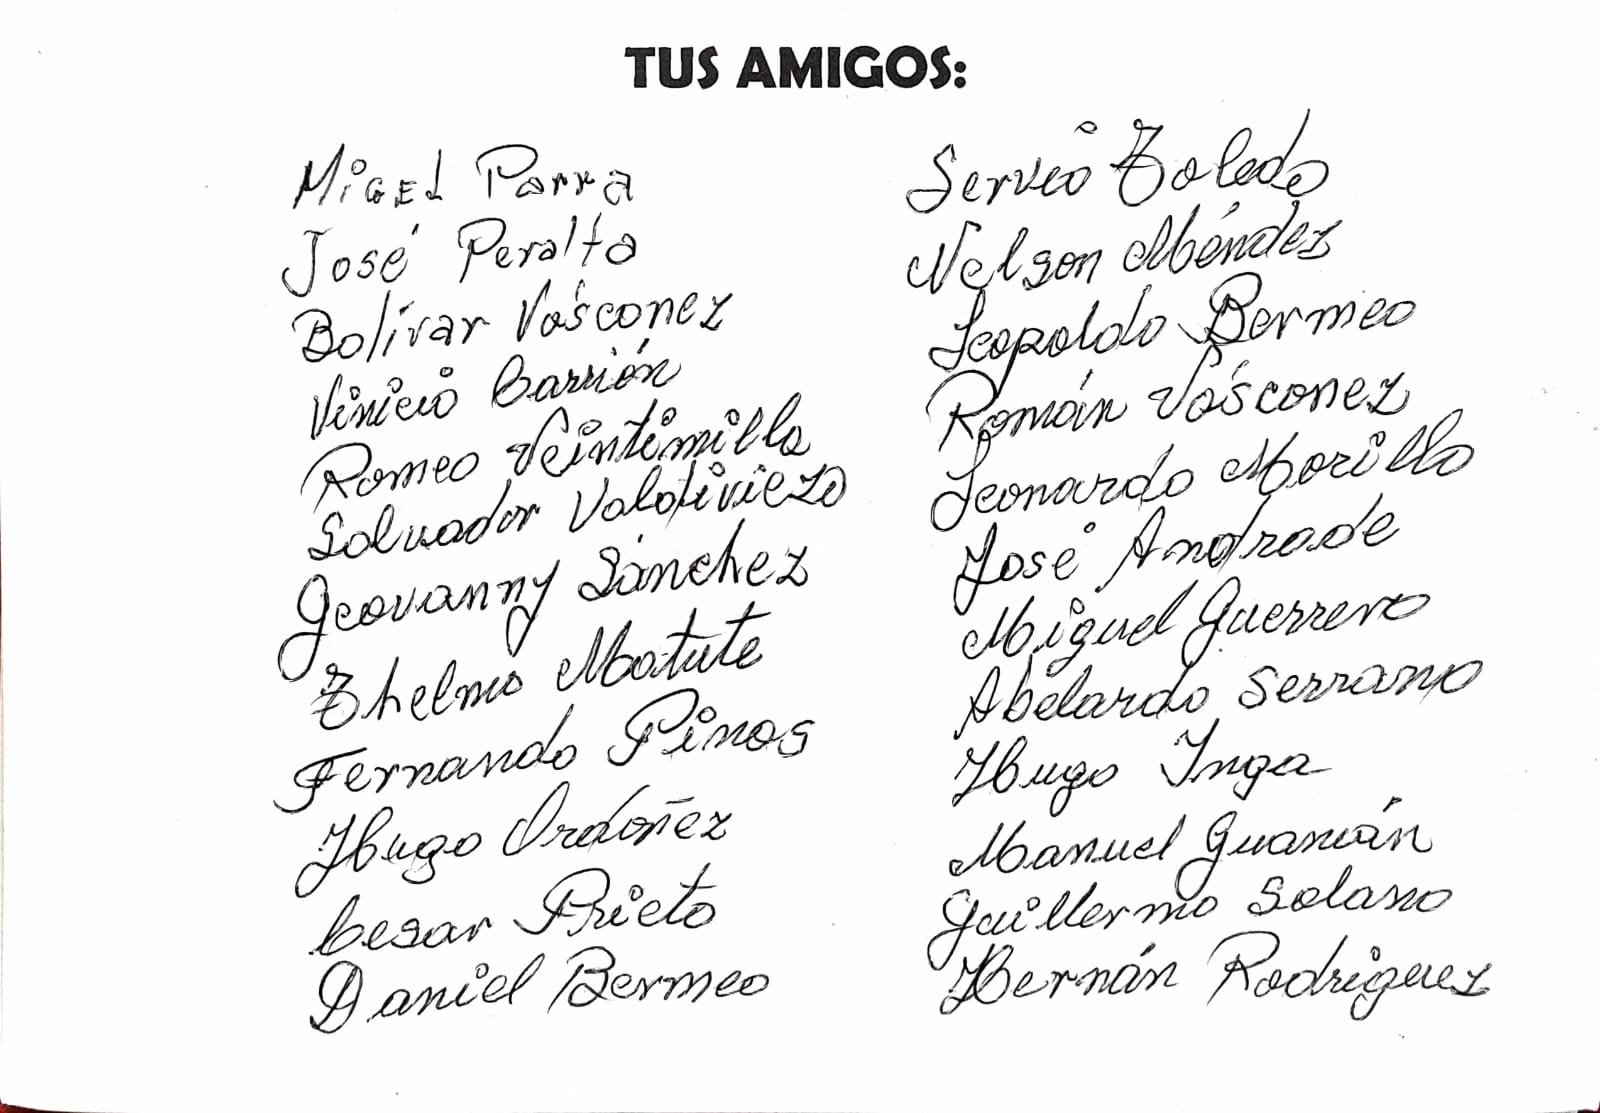 TUS AMIGOS:
Migel Parra
José Peralta
Bolívar Vásconez
Vinicio Carrión
Romeo Veintimilla
Salvador Valdiviezo
Geovanny Sánchez
Thelmo Matute
Fernando Pinos
Hugo Ordóñez
Cesar Prieto
Daniel Bermeo
Servio Toledo
Nelson Méndez
Leopoldo Bermeo
Román Vásconez
Leonardo Morillo
José Andrade
Miguel Guerrero
Abelardo Serrano
Hugo Inga
Manuel Guamán
Guillermo Solano
Hernán Rodriguez